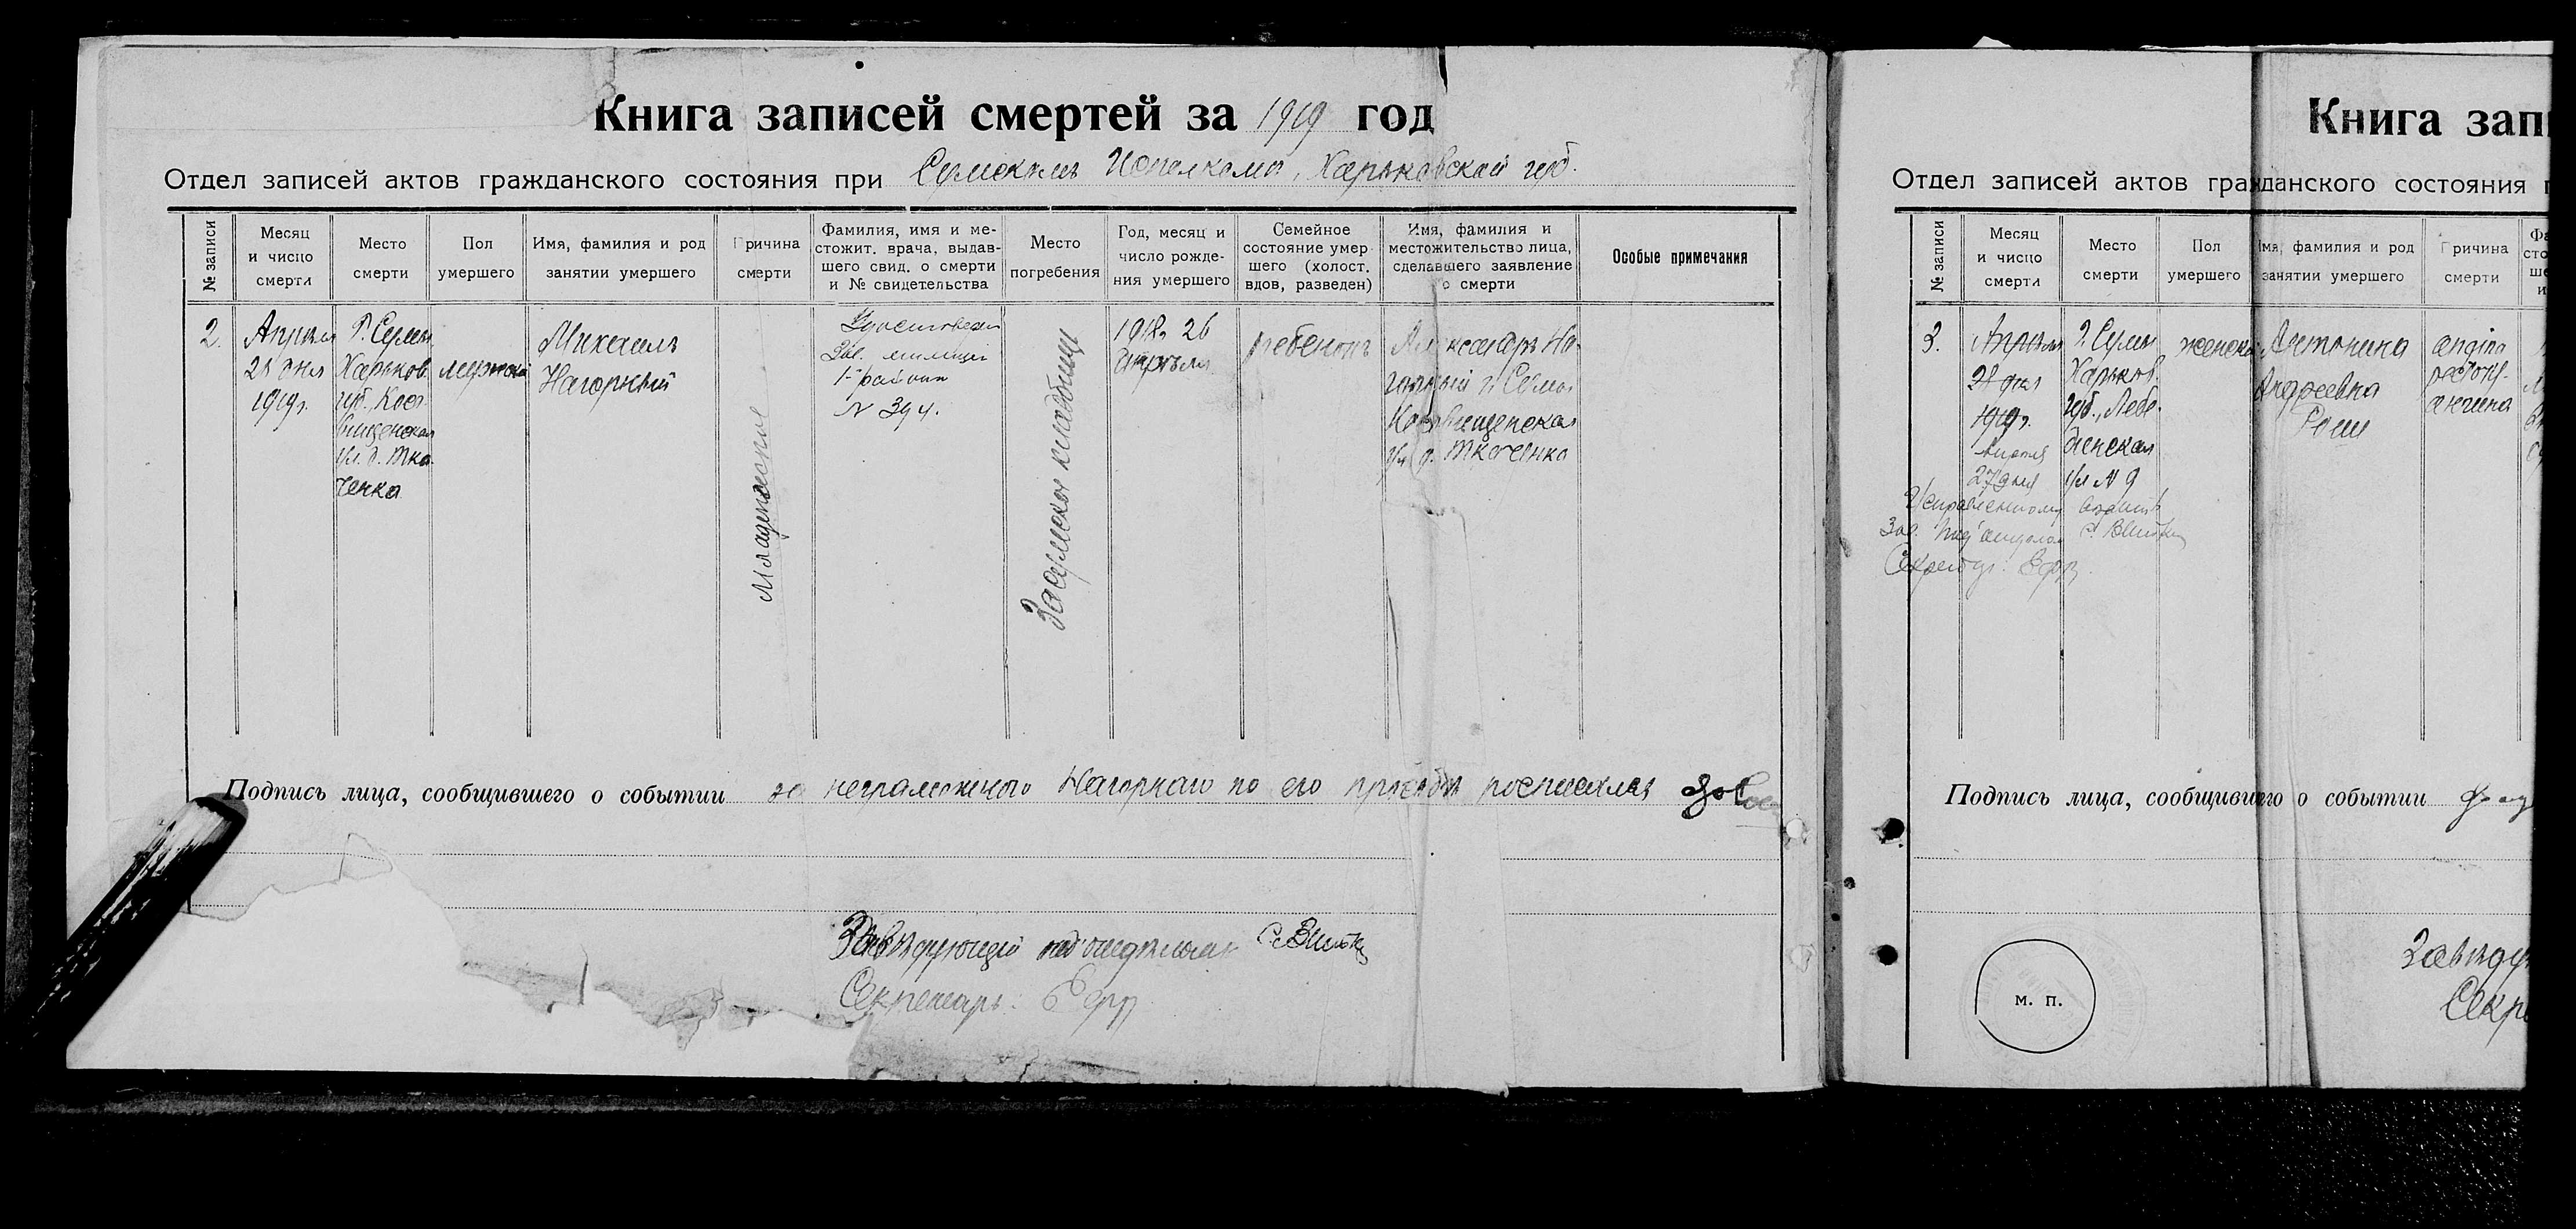 Книга записей смертей за 1919 год
Отдел записей актов гражданского состояния при Сумскомъ Исполкома, Харьковской губ.
№ записи
Месяц
и число
смерти
Место
смерти
Пол
умершего
Имя, фамилия и род
занятии умершего
Причина
смерти
Фамилия, имя и ме-
стожит. врача, выдав-
шего свид. о смерти
и № свидетельства
Место
погребения
Год, месяц и
число рожде-
ния умершего
Семейное
состояние умер-
шего (холост.
вдов, разведен)
Имя, фамилия и
местожительство лица,
сделавшего заявление
о смерти
Особые примечания
2.
Апреля
28 дня
1919г.
Г. Сумы
Харьков.
губ.
ул. д. Тка-
ченка
мужской
Михаилъ
Нагорный
Младенческая
Удостоверен
Зав. милиціи
1го района
№ 394.
Засумское кладбище
1918г. 26
апрѣля
ребенокъ
Александръ На-
горный г. Сумы
ул. д. Ткаченка
Подпись лица, сообщившего о событии за неграмотного Нагорнаго по его просьбѣ росписался
Завѣдующій подотделомъ
Секретарь:
Книга зап
Отдел записей актов гражданского состояния
№ записи
Месяц
и число
смерти
Место
смерти
Пол
умершего
Имя, фамилия и род
занятии умершего
Причина
смерти
3.
Апреля
28 дня
1919г.
Апреля
27 дня
Г. Сумы
Харьков.
губ., Лебе-
динская
ул № 9
женский
Антонина
Андреевна
Рош
angina
ангина
Исправленному верить
Зав. подотделом
Секретарь:
Подпись лица, сообщившего о событии
м. п.
Завѣду
Секре